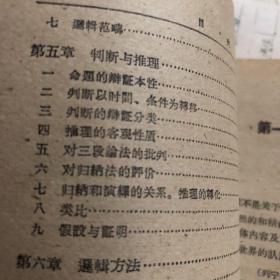 七 邏輯范疇
第五章 判断与推理
一 命題的辯証本性
二 判断以时間、条件为轉移
三 判断的辯証分类
四 推理的客观性质
五 对三段論法的批判
六 对归納法的評价
七 归納和演繹的关系。推理的轉化
八 类比
九 假設与証明
第六章 邏輯方法
第一
不是关于
体內容及
世界的